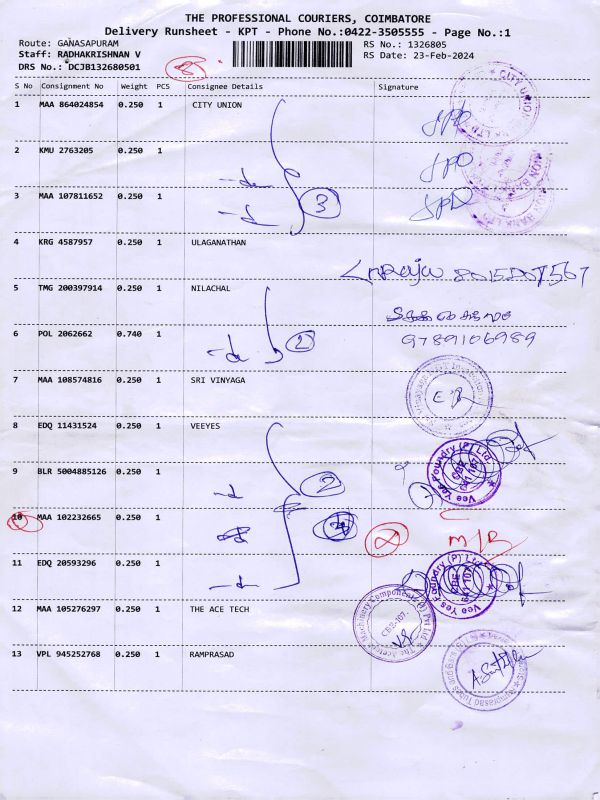 THE PROFESSIONAL COURIERS, COIMBATORE
Delivery Runsheet - KPT - Phone No.:0422-3505555 - Page No.:1
Route: GANASAPURAM RS No.: 1326805
Staff: RADHAKRISHNAN V RS Date: 23-Feb-2024
DRS No.: DCJB132680501
S No Consignment No Weight PCS Consignee Details Signature
1 MAA 864024854 0.250 1 CITY UNION
2 KMU 2763205 0.250 1
3 MAA 107811652 0.250 1
3
4 KRG 4587957 0.250 1 ULAGANATHAN
8015207567
5 TMG 200397914 0.250 1 NILACHAL
6 POL 2062662 0.740 1
2 9789106989
7 MAA 108574816 0.250 1 SRI VINYAGA
8 EDQ 11431524 0.250 1 VEEYES
Vee Yes Foundry (P) Ltd.
9 BLR 5004885126 0.250 1
2
10 MAA 102232665 0.250 1
M/R
11 EDQ 20593296 0.250 1
Vee Yes Foundry (P) Ltd.
12 MAA 105276297 0.250 1 THE ACE TECH
13 VPL 945252768 0.250 1 RAMPRASAD